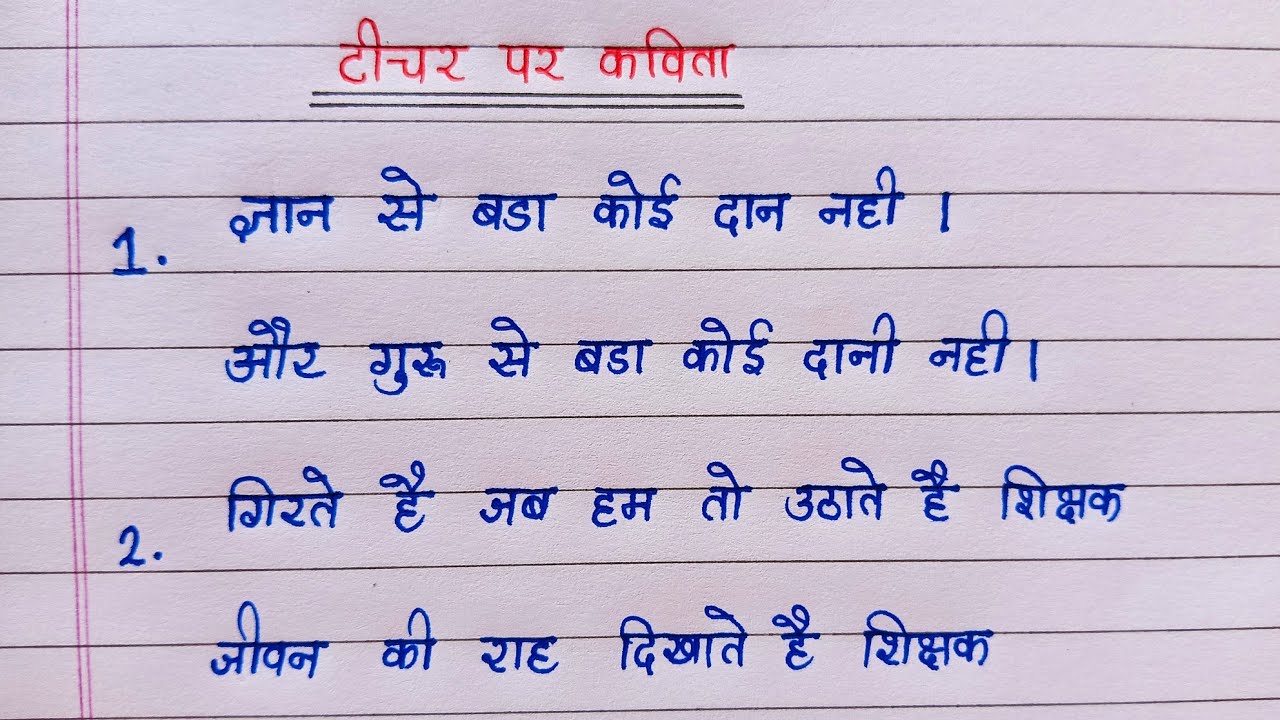 टीचर पर कविता
1. ज्ञान से बडा कोई दान नही ।
और गुरू से बडा कोई दानी नही ।
2. गिरते है जब हम तो उठाते है शिक्षक
जीवन की राह दिखाते है शिक्षक